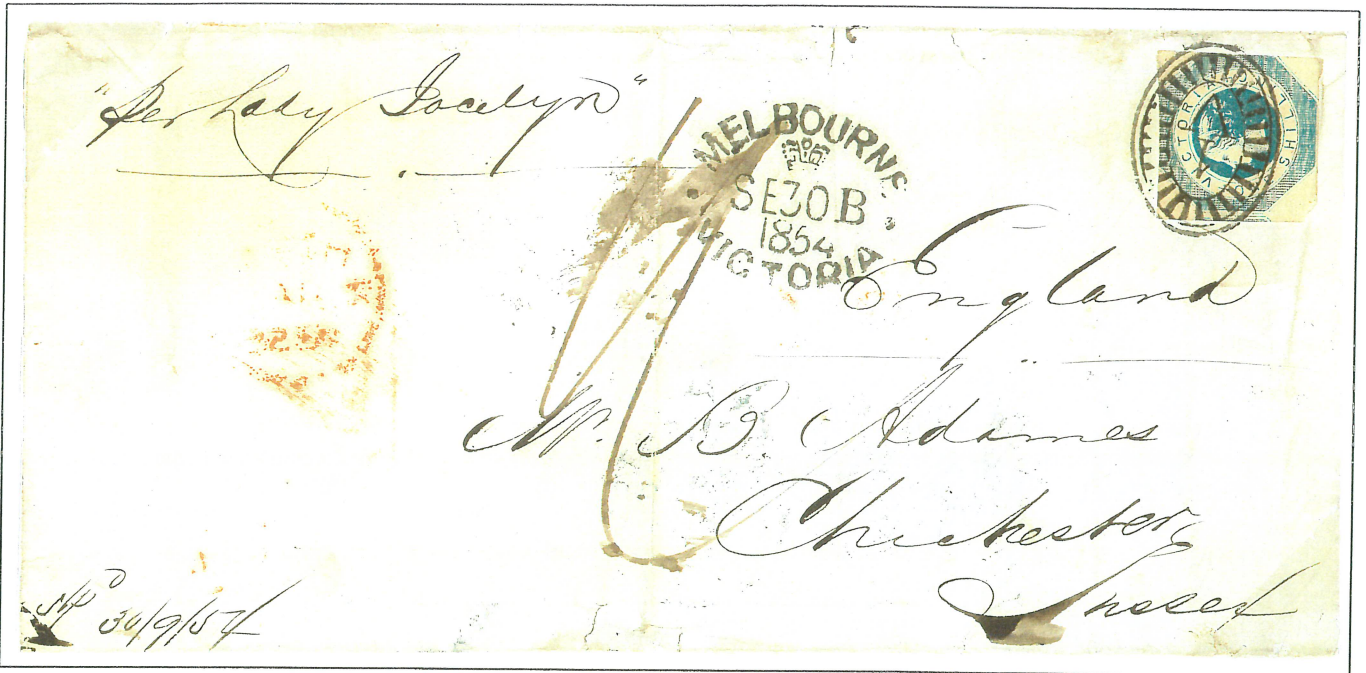 "Per Lady Jocelyn"
MELBOURNE
SE 30 B
1854
VICTORIA
VICTORIA SHILLING
England
Mr. B Adames
Chichester
Sussex
30/9/54